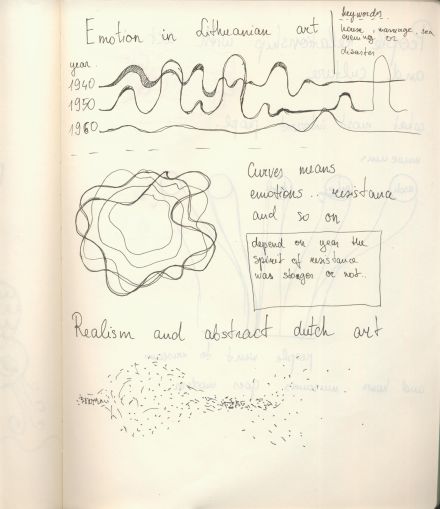 Emotion in Lithuanian art
keywords
house, marriage, sea,
evening or
disaster
year.
1940
1950
1960
Curves means
emotions.. resistance
and so on
depend on year the
spirit of resistance
was stonger or not..
Realism and abstract dutch art